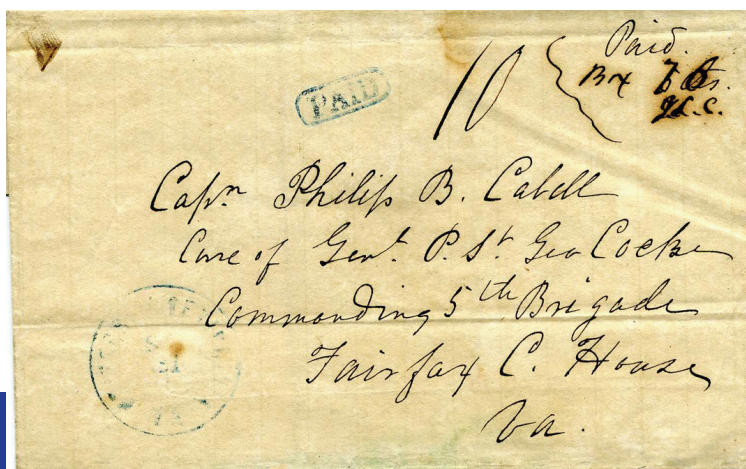 Paid.
Box
PAID
10
Capn Philip B. Cabell
Care of Genl. P. St Geo Cocke
Commanding 5th Brigade
Fairfax C. House
Va.